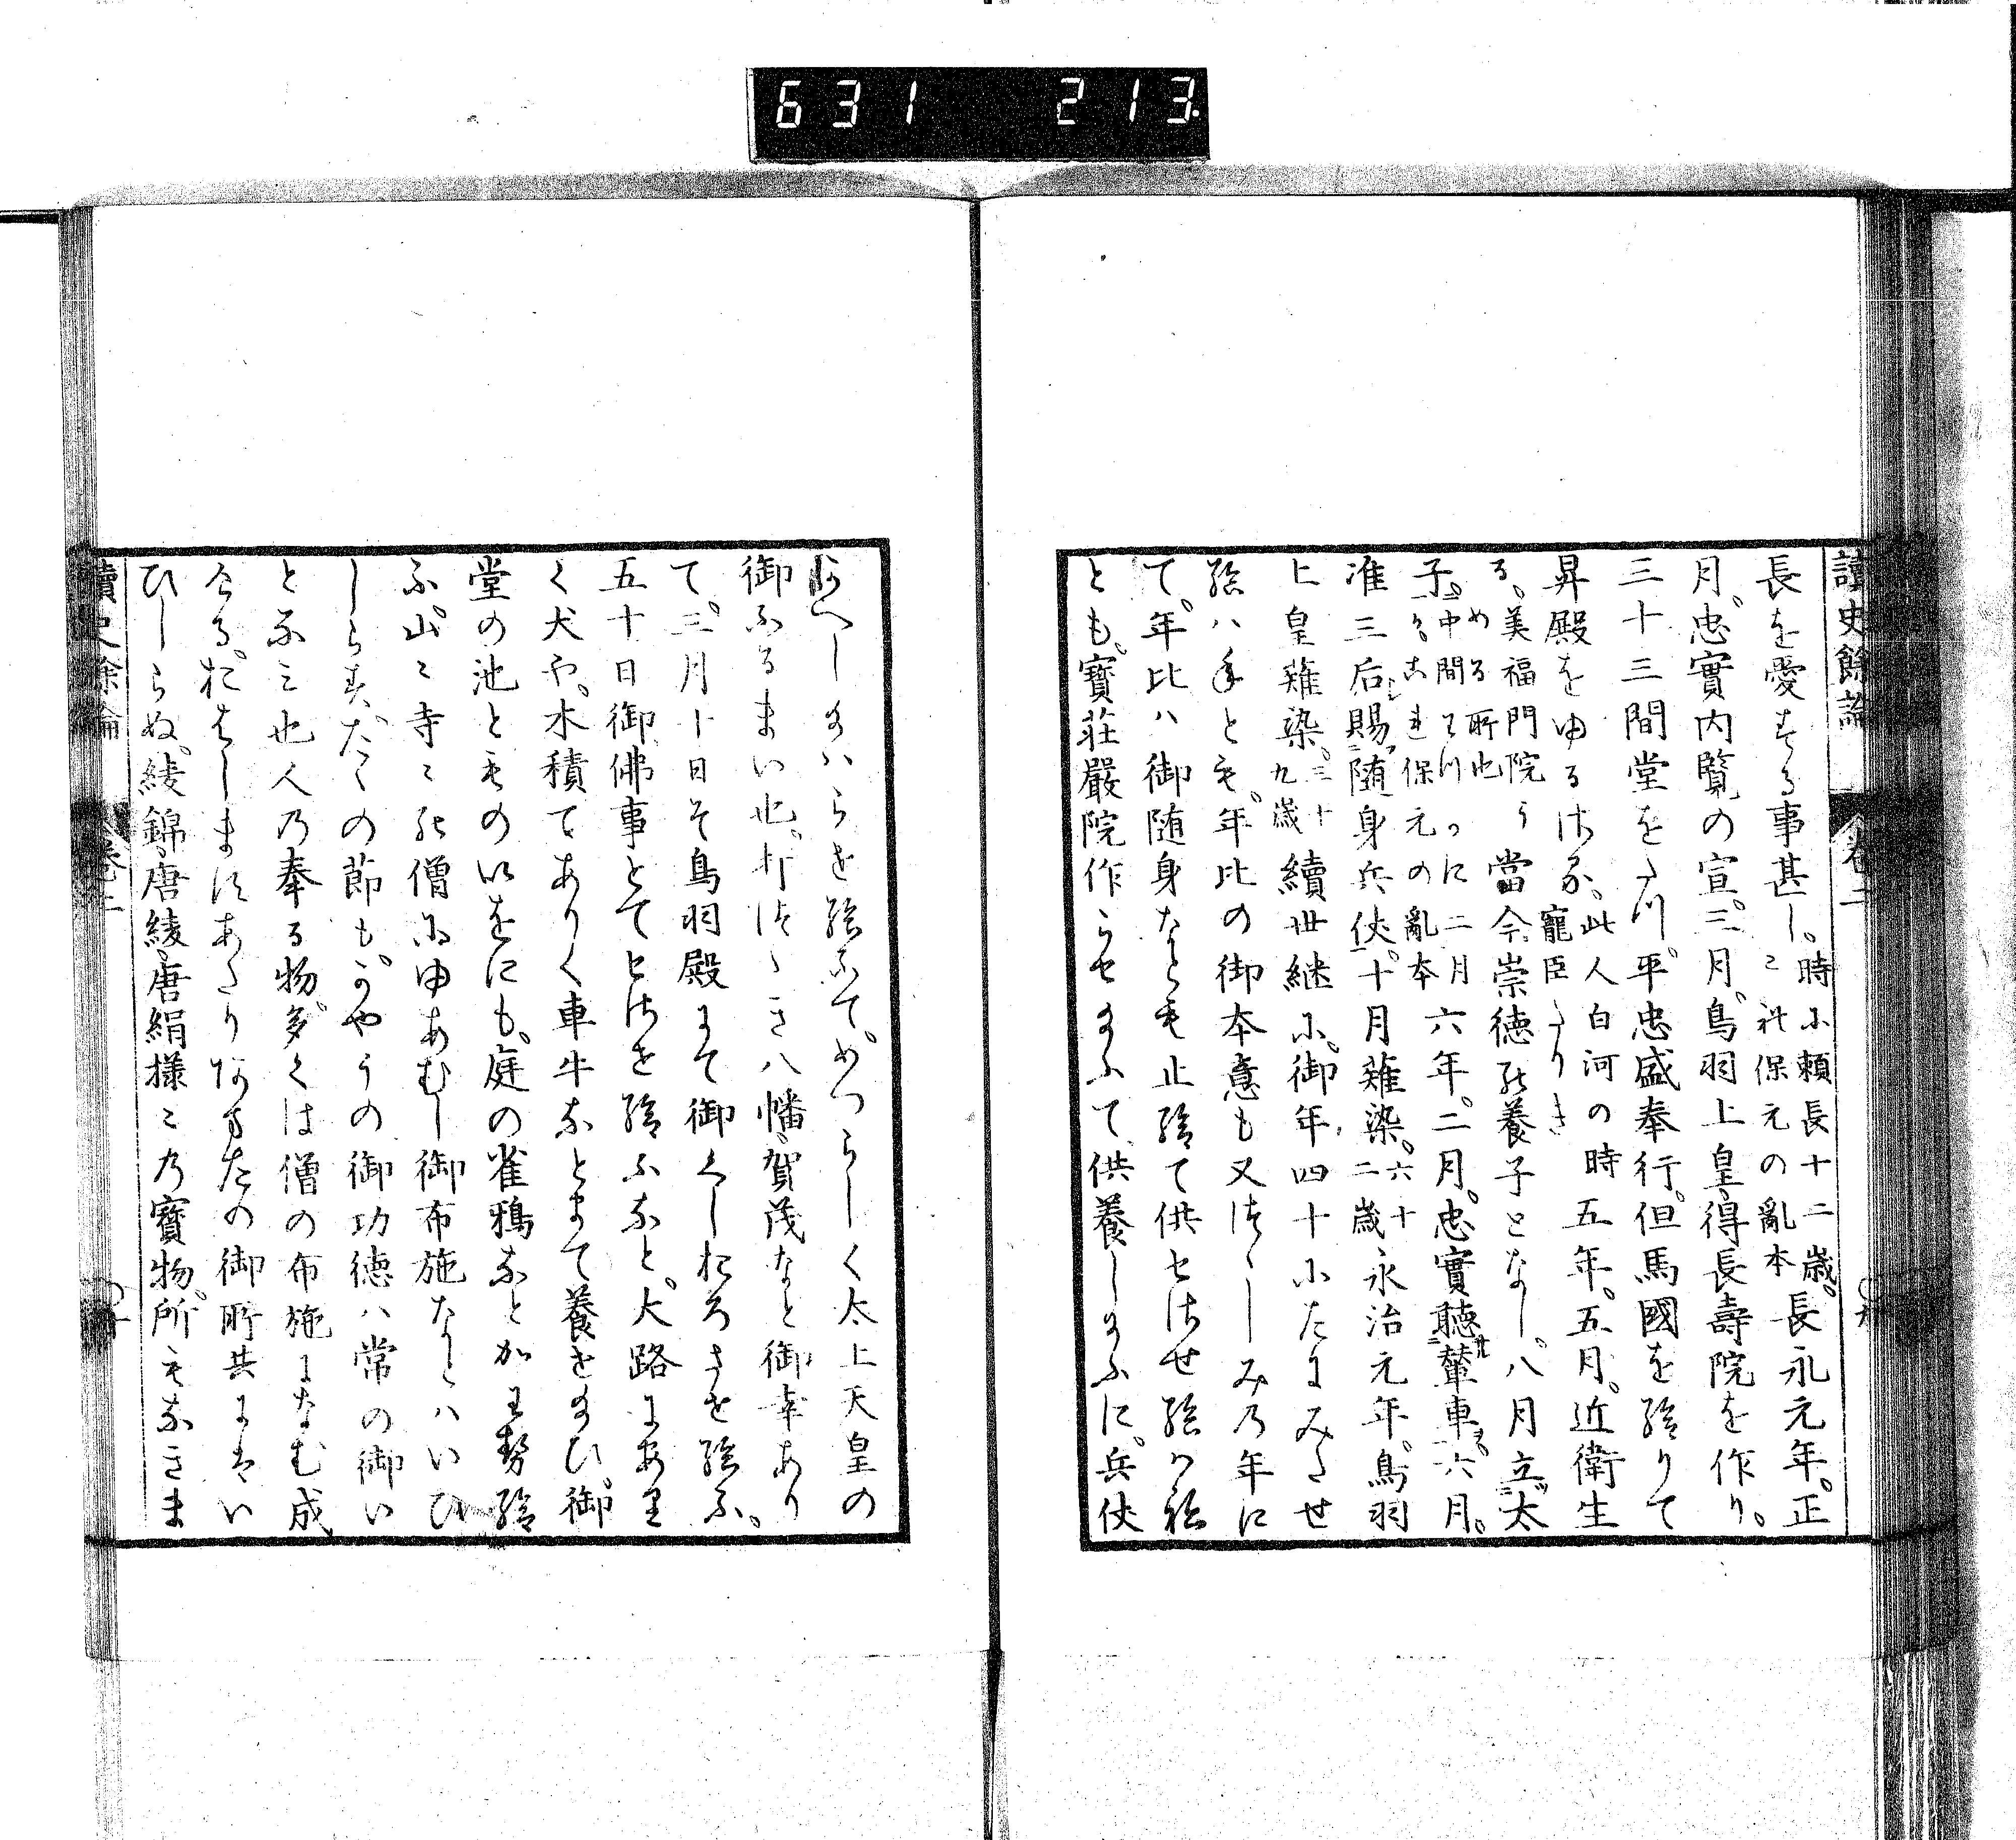 631 213.
讀史餘論 卷二
長を愛する事甚し。時に頼長十二歳。これ保元の亂本 長承元年。正
月。忠實内覧の宣。三月。鳥羽上皇、得長壽院を作り。
三十三間堂をたつ。平忠盛奉行。但馬國を給りて
昇殿をゆるさる。此人白河の時寵臣たりき 五年。五月。近衛生
る。美福門院う 當今崇徳の養子となし。八月立太
子。中間てつつに二月 これ保元の亂本 六年。二月。忠實聽輦車。六月。
准三后賜随身兵仗。十月薙染。六十二歳 永治元年。鳥羽
上皇薙染。三十九歳 續世継に。御年四十にたにみたせ
給はねとも。年比の御本意も又つゝしみの年に
て。年比は御随身なとも止給て供せさせ給はね
とも。寶荘嚴院作らせ給ふて、供養し給ふに。兵仗
かへし給はらせ給ふて。めつらしく太上天皇の
御ふるまい也。打つゝき八幡、賀茂なと御幸あり
て。三月十日そ鳥羽殿にて御くしおろさせ給ふ。
五十日御佛事とてせさせ給ふなと。大路にあり
く犬や。木積てありく車牛なとまて養せ給ひ。御
堂の池とものいをにも。庭の雀鴉なとかは勢給
ふ。山々寺々の僧にゆあむし御布施なとはいひ
しらす。たゝの節も。かやうの御功徳は常の御い
となみ也人の奉る物。多くは僧の布施になむ成
ける。おはしますあたりあまたの御所共にはい
ひしらぬ。綾錦。唐綾。唐絹様々の寶物。所もなきま
讀史餘論 卷二